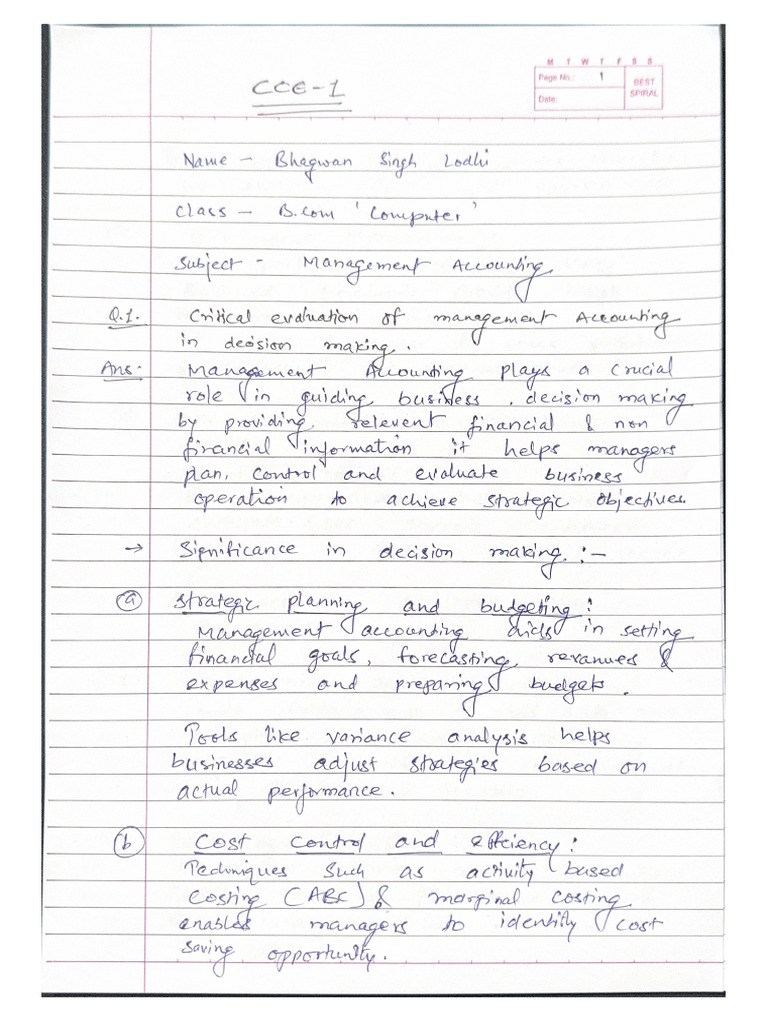 M T W T F S S
Page No.: 1
BEST
SPIRAL
Date:
CCE-1
Name - Bhagwan Singh Lodhi
Class - B.com 'Computer'
Subject - Management Accounting
Q.1. Critical evaluation of management Accounting
in decision making.
Ans:- Management Accounting plays a crucial
role in guiding business. decision making
by providing relevent financial & non
financial information it helps managers
plan, control and evaluate business
operation to achieve strategic objectives
→ Significance in decision making :-
(a) Strategic planning and budgeting :
Management accounting aids in setting
financial goals, forecasting, revanues &
expenses and preparing budgets.
Tools like variance analysis helps
businesses adjust strategies based on
actual performance.
(b) Cost control and efficiency :
Techniques such as activity based
costing (ABC) & marginal costing
enables managers to identify cost
saving opportunity.